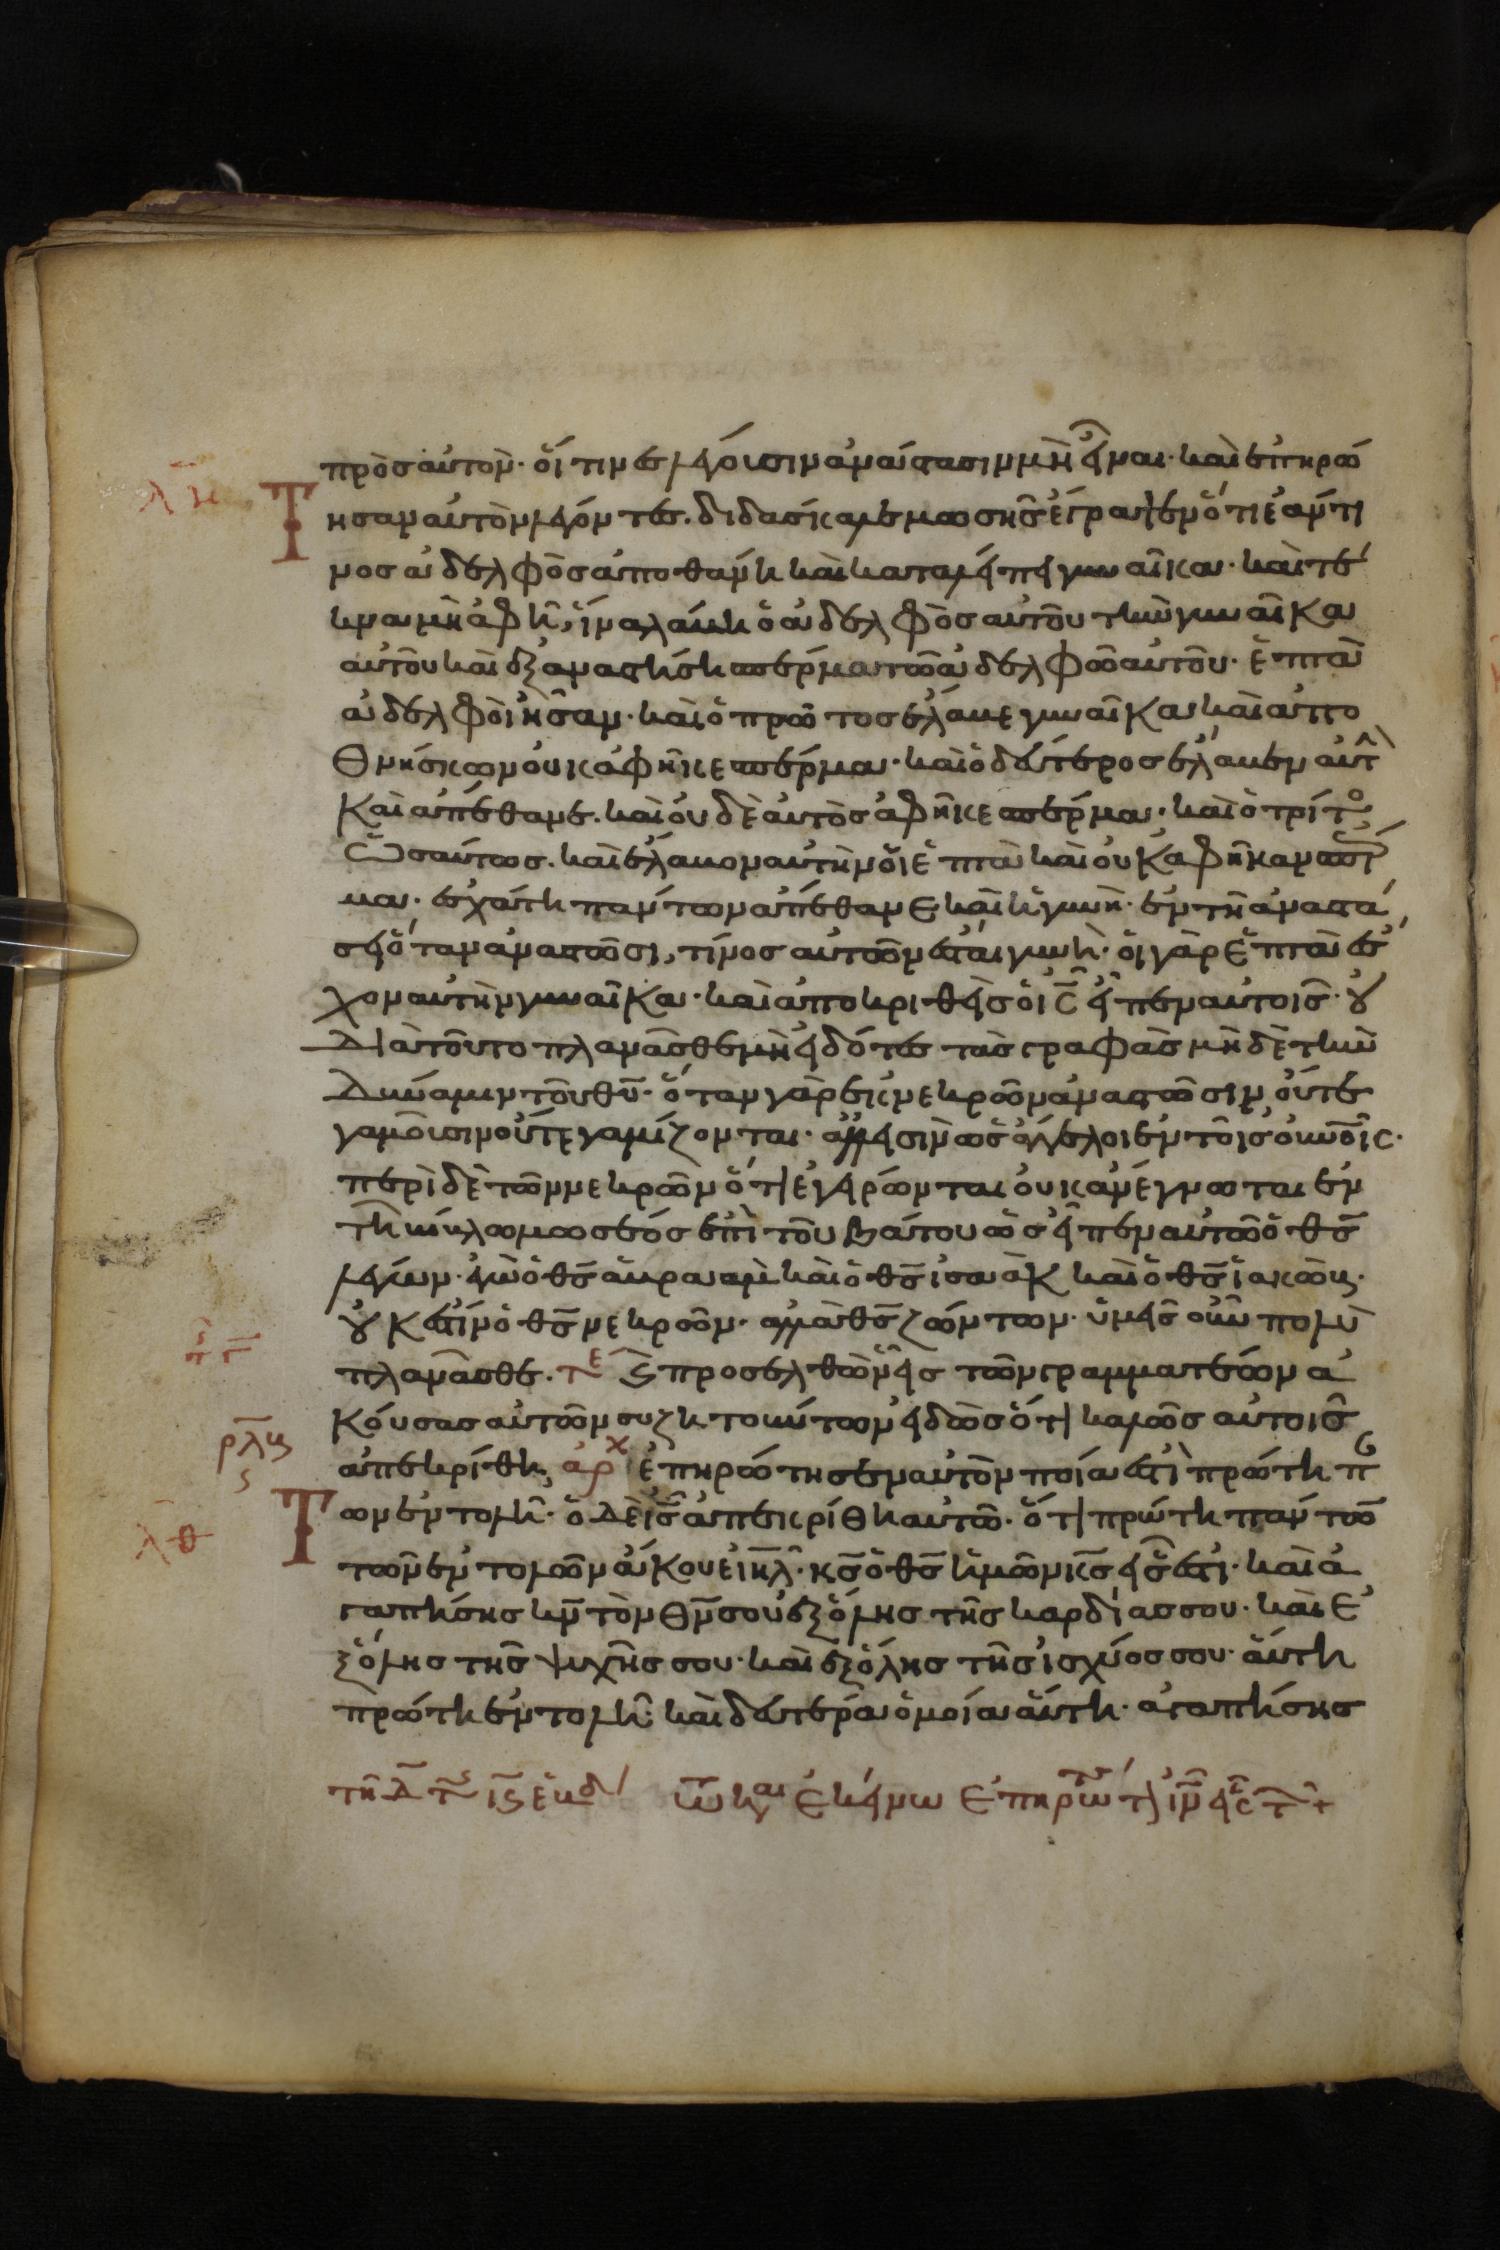 πρὸς αὐτόν· οἵτινες λέγουσιν ἀνάστασιν μὴ εἶναι· καὶ ἐπηρώ
λη Τησαν αὐτὸν λέγοντες. διδάσκαλε μωσῆς ἔγραψεν ὅτι ἐάν τι
νος ἀδελφὸς ἀποθάνη καὶ καταλείπει γυναῖκα· καὶ τέ
κνα μὴ ἀφῆ, ἵνα λάβη ὁ ἀδελφὸς αὐτοῦ τὴν γυναῖκα
αὐτοῦ καὶ ἐξαναστήση σπέρμα τῶ ἀδελφῶ αὐτοῦ· ἑπτὰ
ἀδελφοὶ ἦσαν· καὶ ὁ πρῶτος ἔλαβε γυναῖκα καὶ ἀπο
θνήσκων οὐκ ἀφῆκε σπέρμα· καὶ ὁ δεύτερος ἔλαβεν αὐτ
καὶ ἀπέθανε. καὶ οὐδὲ αὐτὸς ἀφῆκε σπέρμα· καὶ ὁ τρίτο
ὡσαύτως. καὶ ἔλαβον αὐτὴν οἱ ἑπτὰ καὶ οὐκ ἀφῆκαν σπέρ
μα· ἐσχάτη πάντων ἀπέθανε καὶ ἡ γυνή· ἐν τῆ ἀναστά
σει ὅταν ἀναστῶσι, τίνος αὐτῶν ἔσται γυνή· οἱ γὰρ ἑπτὰ ἔσ
χον αὐτὴν γυναῖκα· καὶ ἀποκριθεὶς ὁ ις εἶπεν αὐτοῖς· οὐ
διὰ τοῦτο πλανᾶσθε μὴ εἰδότες τὰς γραφὰς μηδὲ τὴν
δύναμιν τοῦ θυ· ὅταν γὰρ ἐκ νεκρῶν ἀναστῶσιν οὔτε
γαμοῦσιν οὔτε γαμίζονται· ἀλλ εἰσὶν ὡς ἄγγελοι ἐν τοῖς οὐνοῖς·
περὶ δὲ τῶν νεκρῶν ὅτι ἐγείρονται οὐκ ἀνέγνωται ἐν
τῆ βίβλω μωσέος ἐπὶ τοῦ βάτου ὡς εἶπεν αὐτῶ ὁ θς
λέγων· ἐγὼ ὁ θς ἀβραὰμ καὶ ὁ θς ἰσαὰκ καὶ ὁ θς ἰακώβ·
οὐκ ἔστιν ὁ θς νεκρῶν· ἀλλὰ θς ζώντων· ὑμεῖς οὖν πολὺ
πλανᾶσθε. τε ϛ προσελθὼν εἷς τῶν γραμματέων ἀ
κούσας αὐτῶν συζητούντων εἰδὼς ὅτι καλῶς αὐτοῖς
ρλς ϛ
ἀπεκρίθη, ἀρχ ἐπηρώτησεν αὐτὸν ποία ἐστὶ πρώτη π
λθ Των ἐντολή· ὁ δὲ ις ἀπεκρίθη αὐτῶ· ὅτι πρώτη πάντω
τῶν ἐντολῶν ἄκουε ιηλ· κς ὁ θς ἡμῶν κς εἷς ἐστί· καὶ ἀ
γαπήσης κν τὸν θν σου ἐξ ὅλης τῆς καρδίας σου· καὶ ἐ
ξ ὅλης τῆς ψυχῆς σου· καὶ ἐξ ὅλης τῆς ἰσχύος σου· αὕτη
πρώτη ἐντολή· καὶ δευτέρα ὁμοία αὕτη· ἀγαπήσης
τῆ δ τ ις ἑβδ τῶ καιρ ἐκείνω ἐπηρώτ ιν εἷς τ +